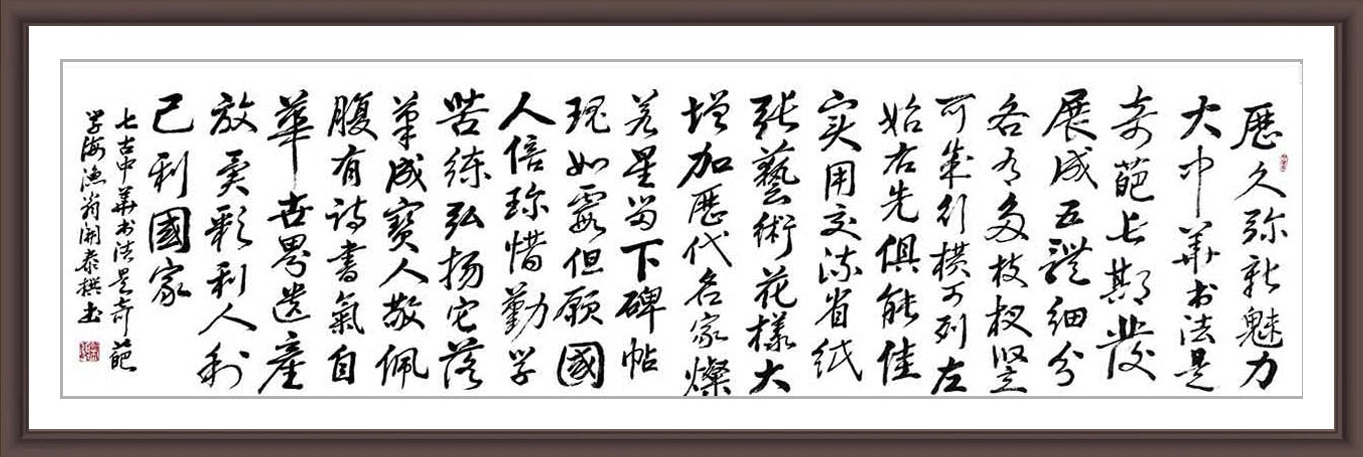 历久弥新魅力
大中华书法是
奇葩长期发
展成五体细分
各有多枝杈竖
可成行横可列左
始右先俱能佳
实用交流省纸
张艺術花樣大
增加历代名家燦
若星留下碑帖
瑰如霞但願國
人倍珍惜勤学
苦练弘扬它落
筆成寶人敬佩
腹有诗書氣自
華世界遗産
放异彩利人利
己利國家
七古中华书法是奇葩
学海渔翁開泰撰书